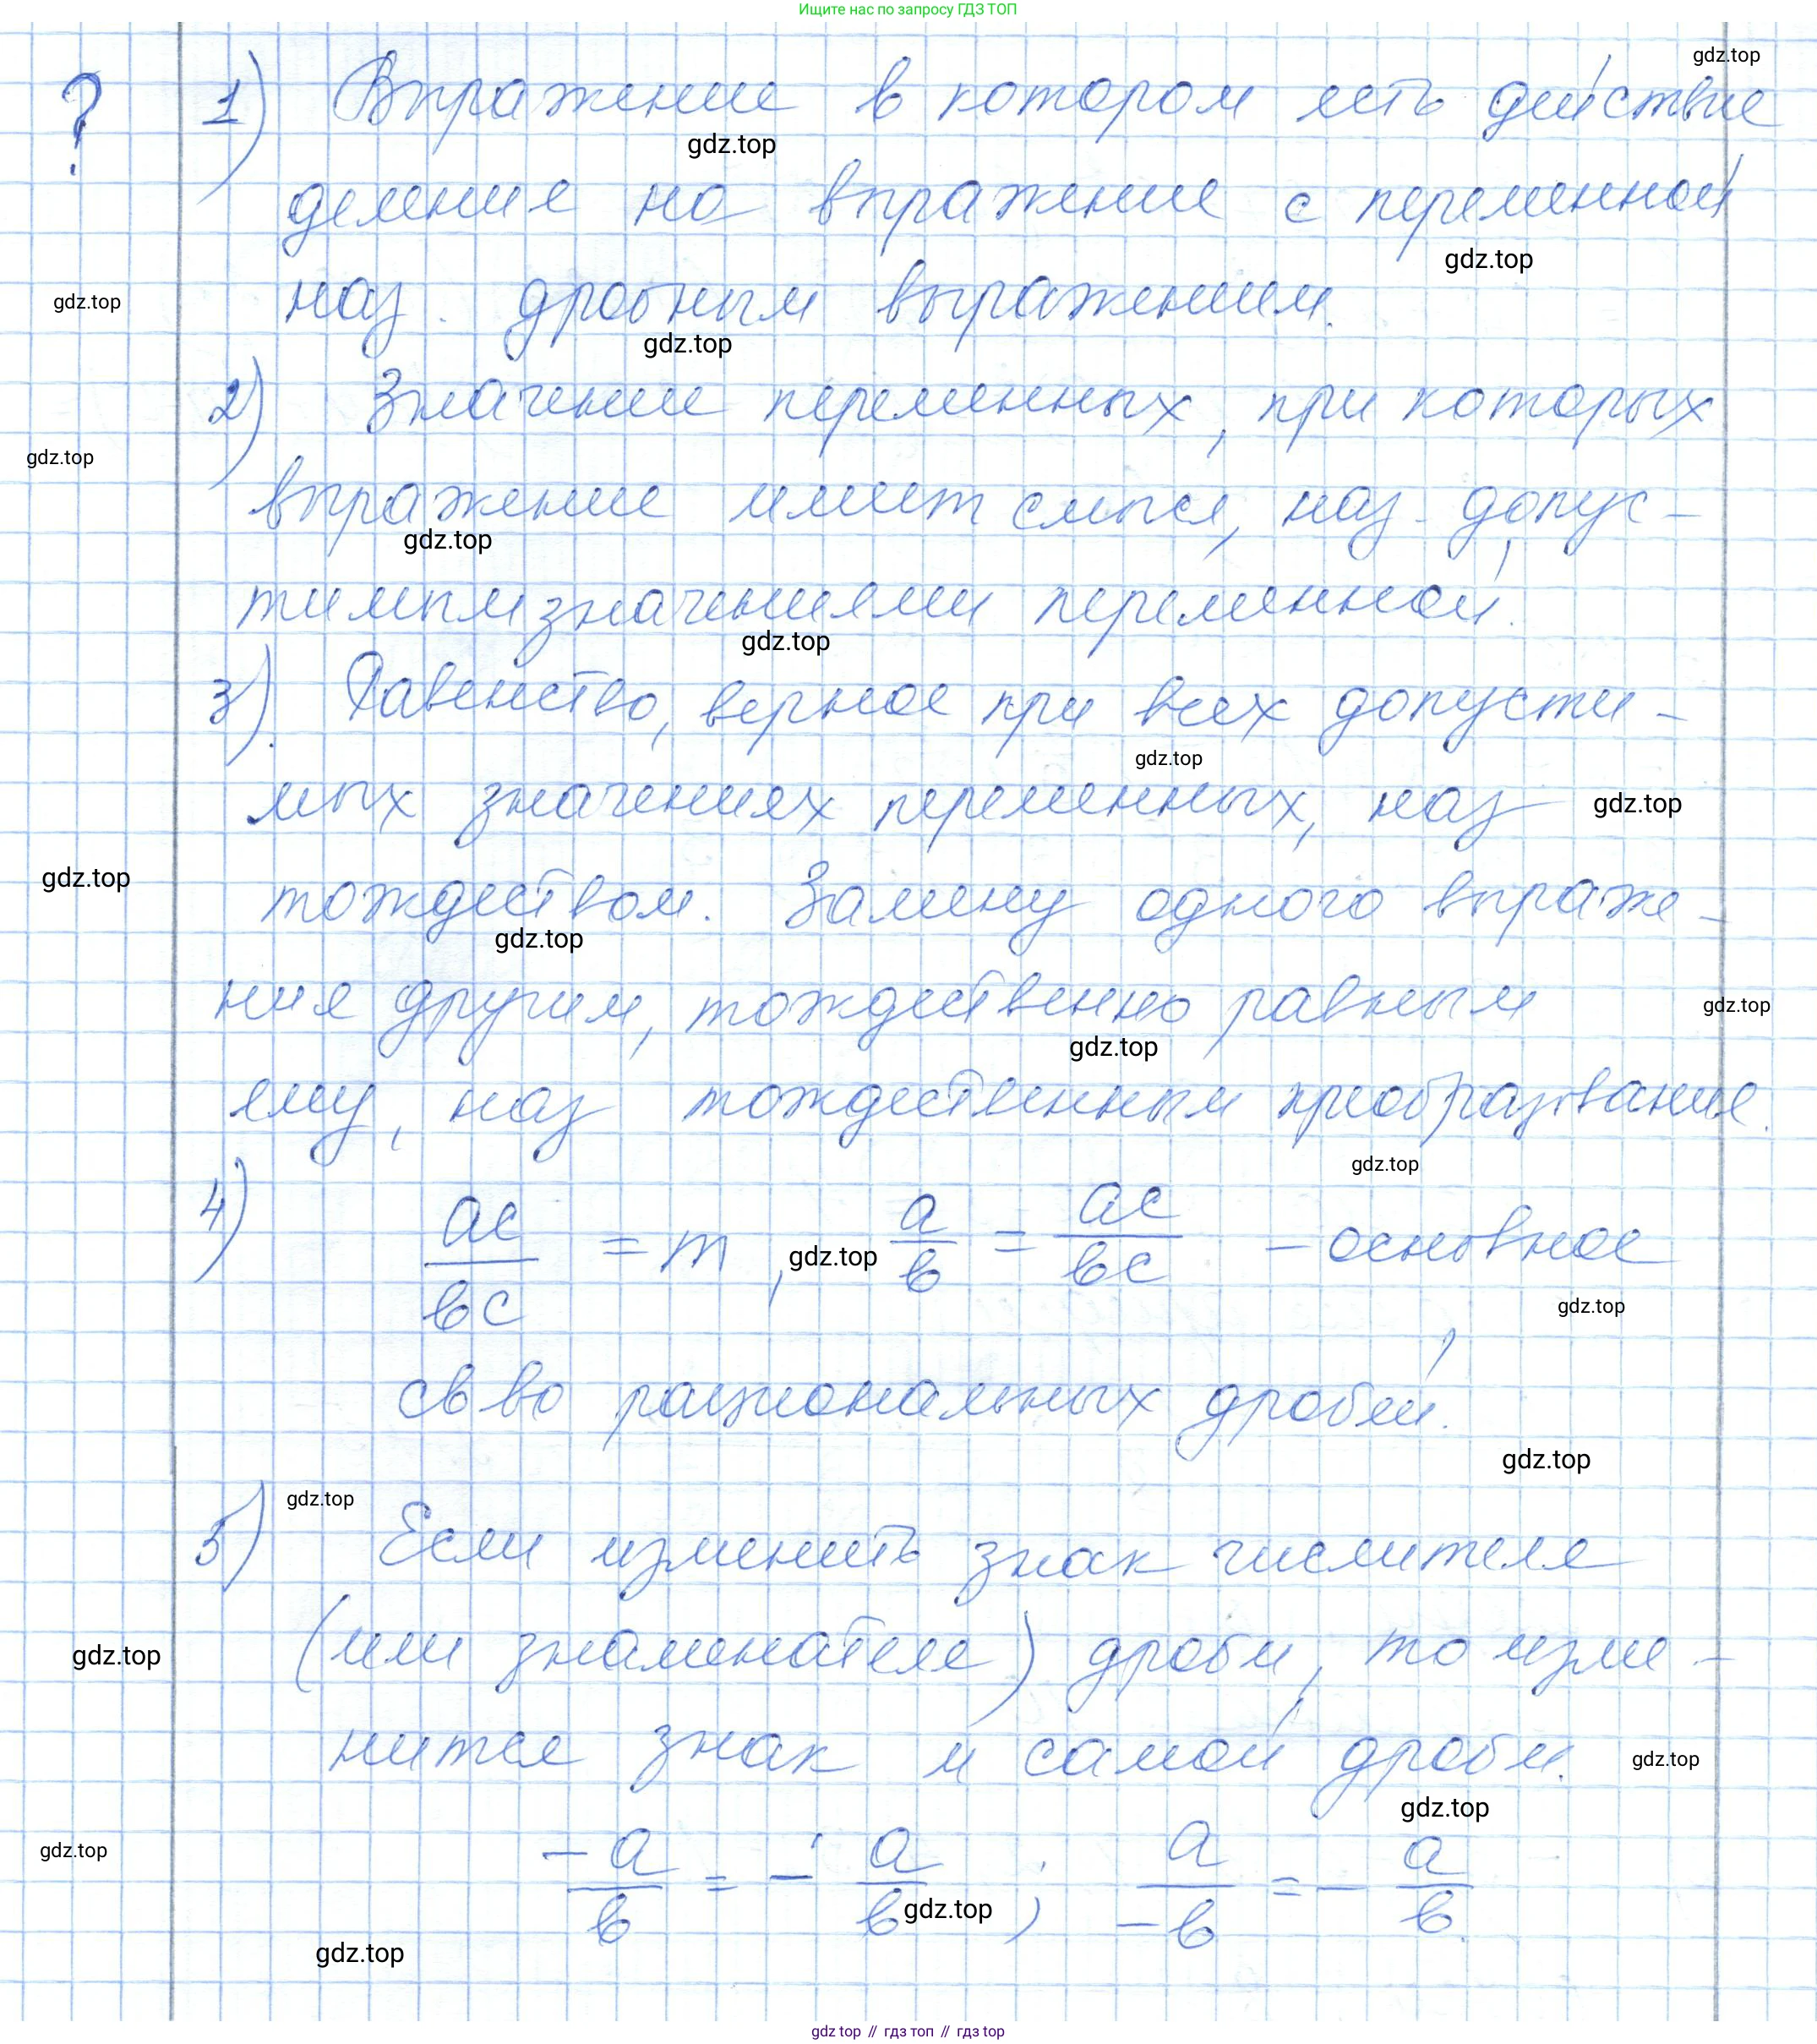 Ищите нас по запросу ГДЗ ТОП
gdz.top
? 1) Выражение в котором есть действие
gdz.top
деление на выражение с переменной
gdz.top
gdz.top
наз. дробным выражением.
gdz.top
2) Значение переменных, при которых
gdz.top
выражение имеет смысл, наз. допус-
gdz.top
тимым значениями переменной.
gdz.top
3) Равенство, верное при всех допусти-
gdz.top
мых значениях переменных, наз
gdz.top
gdz.top
тождеством. Замену одного выраже-
gdz.top
ния другим, тождественно равным
gdz.top
gdz.top
ему, наз тождественным преобразование.
gdz.top
4) ac/bc = m, a/b = ac/bc – основное
gdz.top
gdz.top
св во рациональных дробей.
gdz.top
gdz.top
5) Если изменить знак числителя
(или знаменателя) дроби, то изме-
gdz.top
нится знак и самой дроби.
gdz.top
gdz.top
gdz.top
-a/b = - a/b ; a/-b = - a/b.
gdz.top
gdz.top
gdz top // гдз топ // гдз top